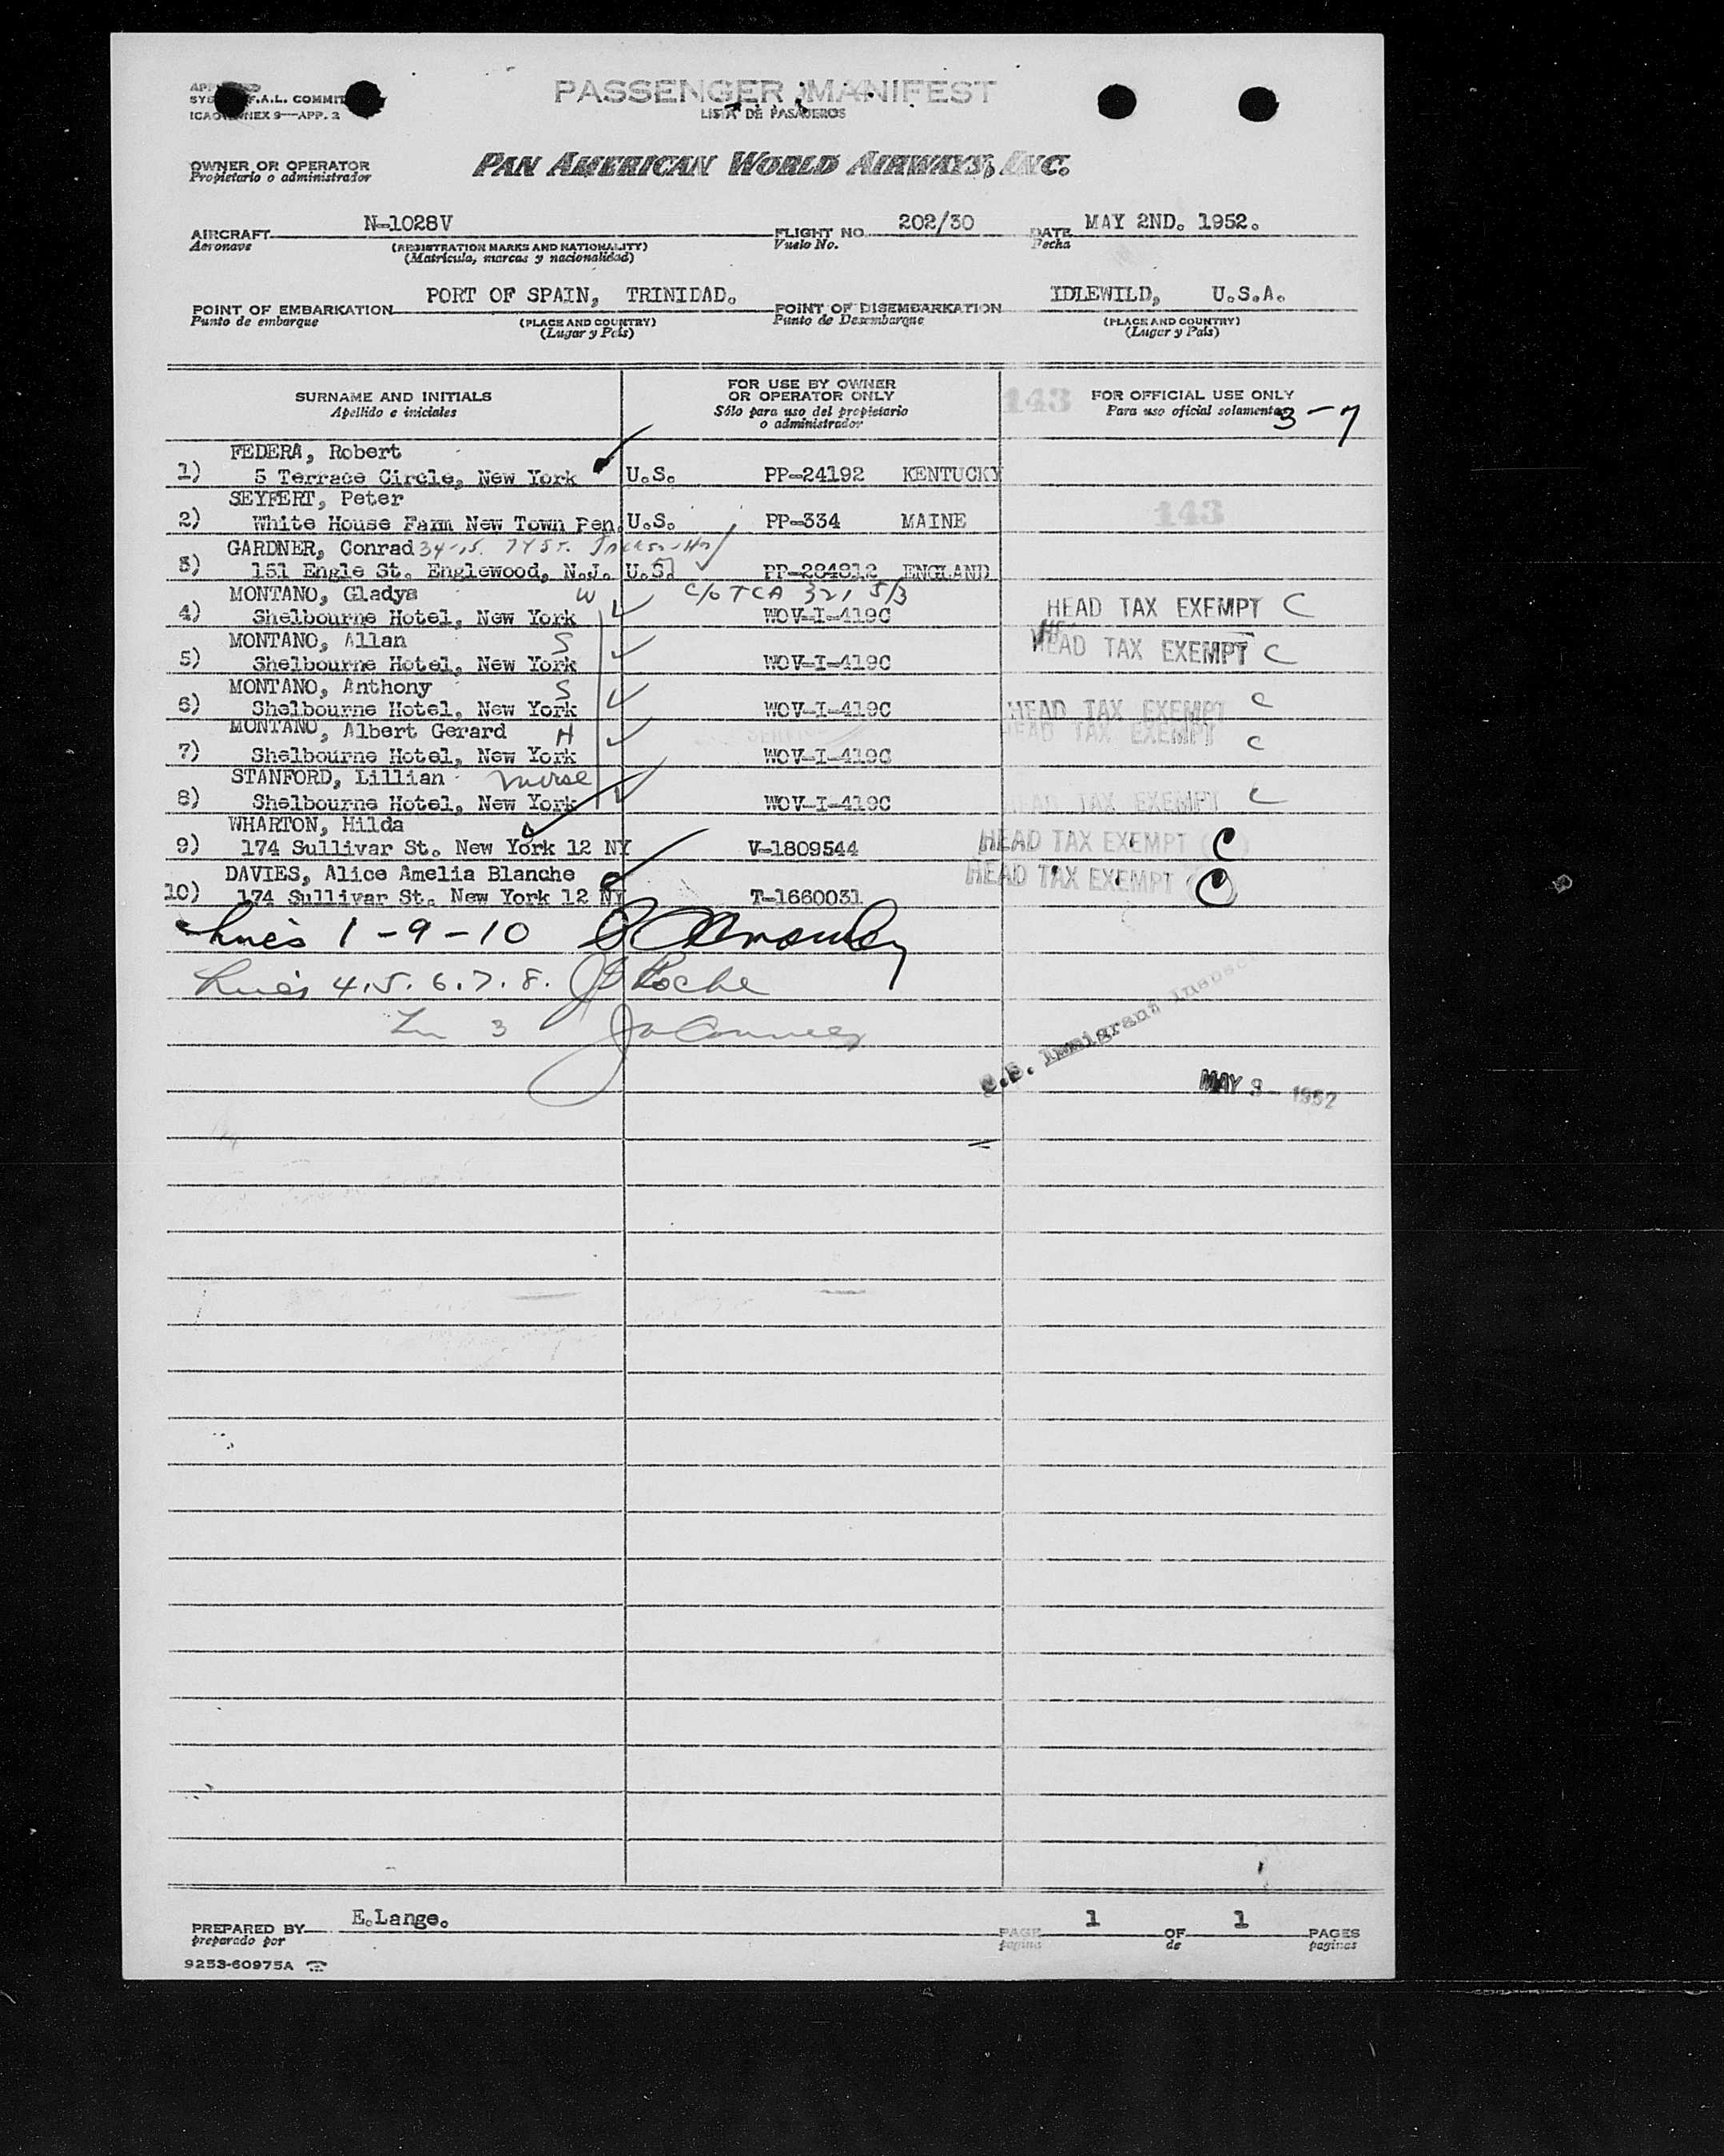 PASSENGER MANIFEST
LISTA DE PASAJEROS
F.A.L. COMMIT
ICAO ANNEX 9—APP. 2
OWNER OR OPERATOR
Propietario o administrador
PAN AMERICAN WORLD AIRWAYS, INC.
AIRCRAFT N-1028V FLIGHT NO. 202/30 DATE MAY 2ND. 1952.
Aeronave (REGISTRATION MARKS AND NATIONALITY) Vuelo No. Fecha
(Matrícula, marcas y nacionalidad)
POINT OF EMBARKATION PORT OF SPAIN, TRINIDAD. POINT OF DISEMBARKATION IDLEWILD, U.S.A.
Punto de embarque (PLACE AND COUNTRY) Punto de Desembarque (PLACE AND COUNTRY)
(Lugar y País) (Lugar y País)
SURNAME AND INITIALS FOR USE BY OWNER OR OPERATOR ONLY 143 FOR OFFICIAL USE ONLY
Apellido e iniciales Sólo para uso del propietario o administrador Para uso oficial solamente 3-7
FEDERA, Robert
1) 5 Terrace Circle, New York U.S. PP-24192 KENTUCKY
SEYFERT, Peter
2) White House Farm New Town Pen. U.S. PP-334 MAINE 143
GARDNER, Conrad 34-15. 74 ST.
3) 151 Engle St. Englewood, N.J. U.S. PP-284812 ENGLAND
MONTANO, Gladys W C/O TCA 321 5/3
4) Shelbourne Hotel, New York WOV-I-419C HEAD TAX EXEMPT C
MONTANO, Allan S
5) Shelbourne Hotel, New York WOV-I-419C HEAD TAX EXEMPT C
MONTANO, Anthony S
6) Shelbourne Hotel, New York WOV-I-419C HEAD TAX EXEMPT C
MONTANO, Albert Gerard H
7) Shelbourne Hotel, New York WOV-I-419C HEAD TAX EXEMPT C
STANFORD, Lillian nurse
8) Shelbourne Hotel, New York WOV-I-419C HEAD TAX EXEMPT C
WHARTON, Hilda
9) 174 Sullivar St. New York 12 NY V-1809544 HEAD TAX EXEMPT C
DAVIES, Alice Amelia Blanche
10) 174 Sullivar St. New York 12 NY T-1660031 HEAD TAX EXEMPT C
Lines 1-9-10
Lines 4.5.6.7.8. Roche
Ln 3
U.S. Immigrant Inspector
MAY 3- 1952
PREPARED BY E.Lange. PAGE 1 OF 1 PAGES
preparado por pagina de paginas
9253-60975A